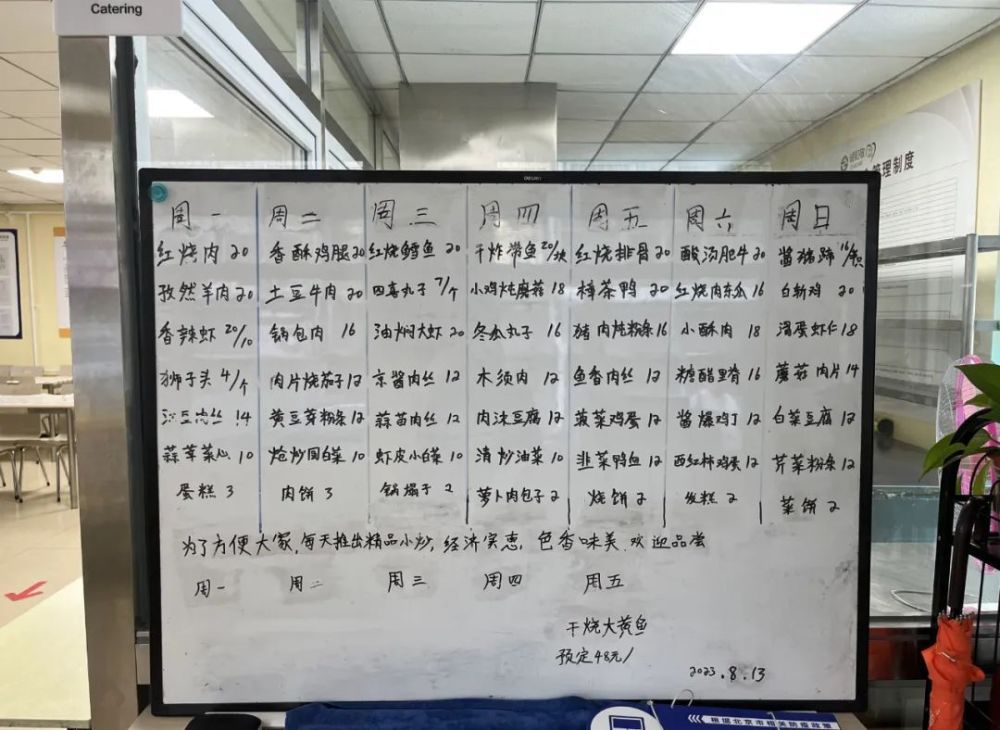 Catering
管理制度
周一 周二 周三 周四 周五 周六 周日
红烧肉 20 香酥鸡腿 20 红烧鳕鱼 20 干炸带鱼 20/块 红烧排骨 20 酸汤肥牛 20 酱猪蹄 16/个
孜然羊肉 20 土豆牛肉 20 四喜丸子 7/个 小鸡炖蘑菇 18 樟茶鸭 20 红烧肉冬瓜 16 白斩鸡 20
香辣虾 20/10 锅包肉 16 油焖大虾 20 冬瓜丸子 16 猪肉炖粉条 16 小酥肉 18 滑蛋虾仁 18
狮子头 4/个 肉片烧茄子 12 京酱肉丝 12 木须肉 12 鱼香肉丝 12 糖醋里脊 16 蘑菇肉片 14
14 黄豆芽粉条 12 蒜苗肉丝 12 肉沫豆腐 12 菠菜鸡蛋 12 酱爆鸡丁 12 白菜豆腐 12
蒜苹菜心 10 炝炒园白菜 10 虾皮小白菜 10 清炒油菜 10 韭菜鸭血 12 西红柿鸡蛋 12 芹菜粉条 12
蛋糕 3 肉饼 3 锅塌子 2 萝卜肉包子 2 烧饼 2 发糕 2 菜饼 2
为了方便大家,每天推出精品小炒,经济实惠,色香味美,欢迎品尝
周一 周二 周三 周四 周五
干烧大黄鱼
预定48元/
2023.8.13
根据北京市相关防疫政策